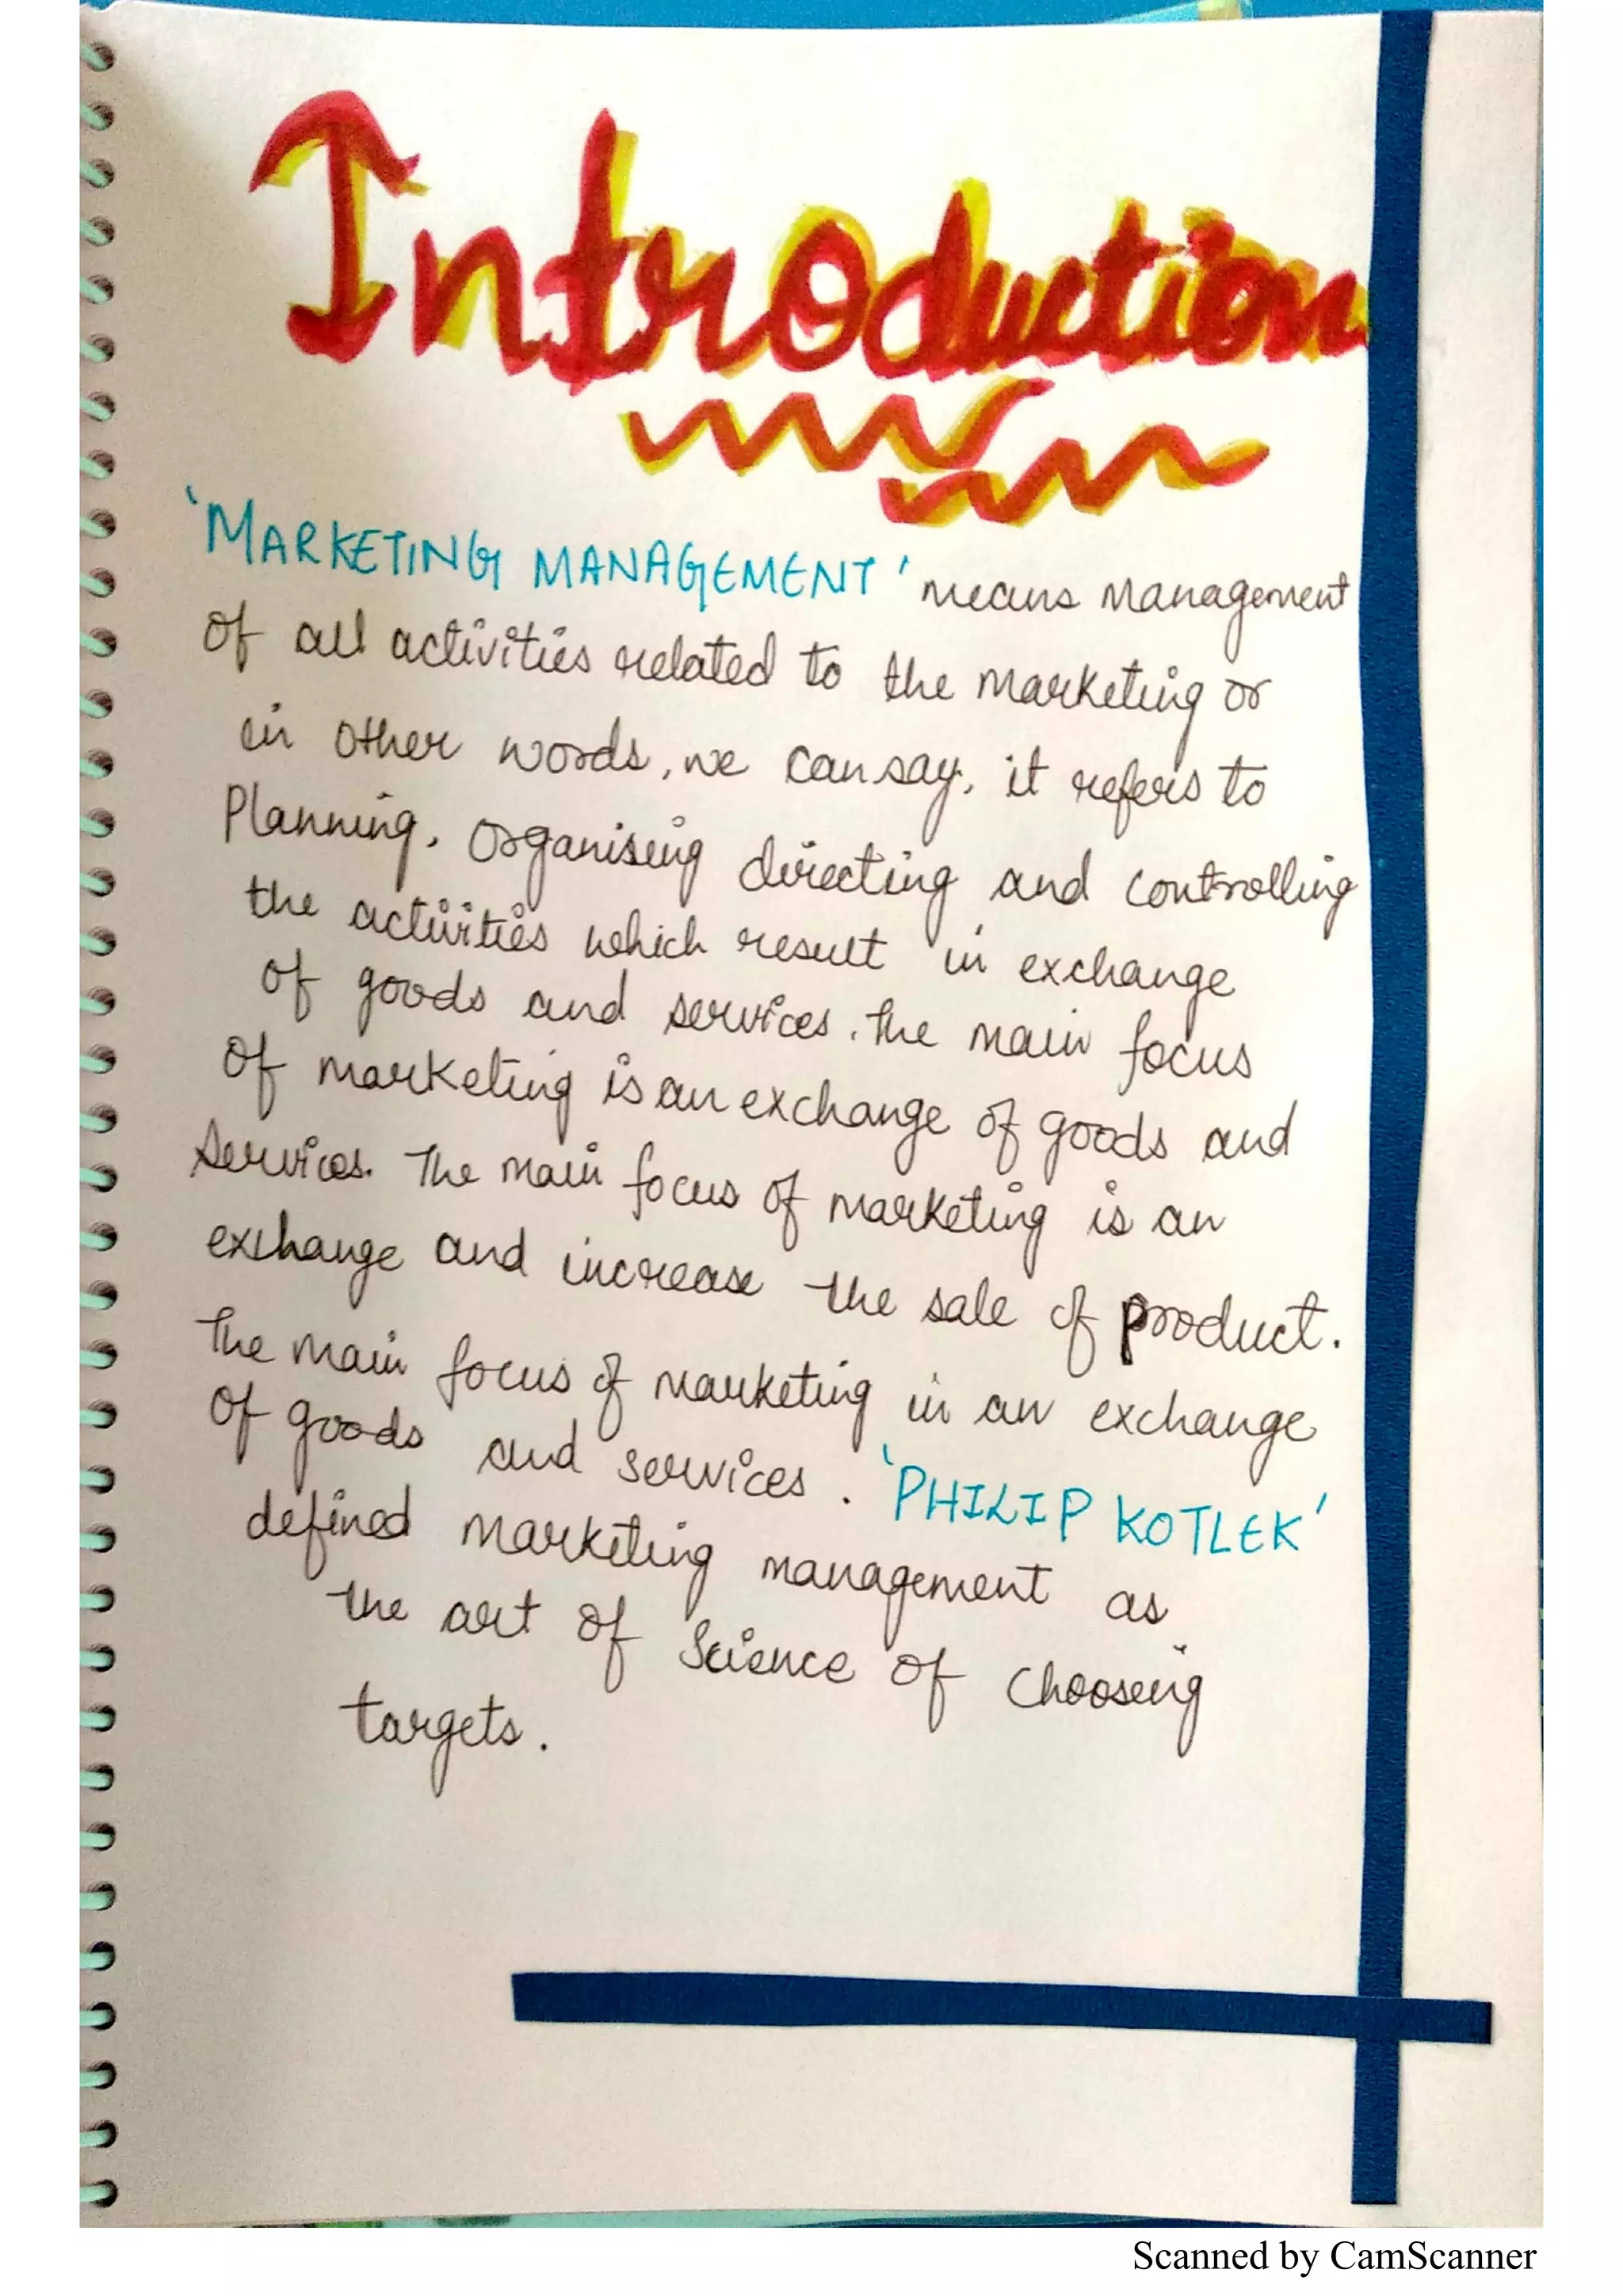 Introduction
'MARKETING MANAGEMENT' means Management
of all activities related to the Marketing or
in other words, we can say, it refers to
Planning, Organising directing and controlling
the activities which result in exchange
of goods and services. The main focus
of marketing is an exchange of goods and
services. The main focus of marketing is an
exchange and increase the sale of product.
The main focus of marketing in an exchange
of goods and services. 'PHILIP KOTLEK'
defined marketing management as
the art of Science of Choosing
targets.
Scanned by CamScanner